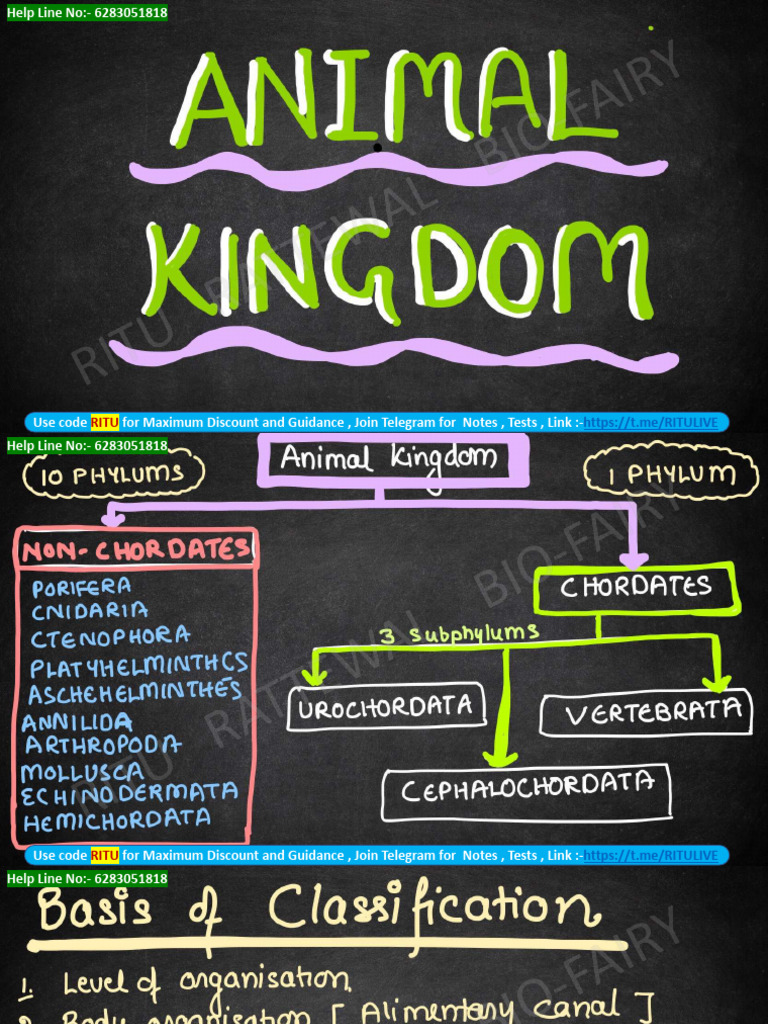 Help Line No:- 6283051818
ANIMAL
KINGDOM
RITU RATTEWAL BIO-FAIRY
Use code RITU for Maximum Discount and Guidance , Join Telegram for Notes , Tests , Link :-https://t.me/RITULIVE
Help Line No:- 6283051818
10 PHYLUMS
Animal kingdom
1 PHYLUM
NON-CHORDATES
PORIFERA
CNIDARIA
CTENOPHORA
PLATYHELMINTHCS
ASCHEHELMINTHES
ANNILIDA
ARTHROPODA
MOLLUSCA
ECHINODERMATA
HEMICHORDATA
CHORDATES
3 subphylums
UROCHORDATA
VERTEBRATA
CEPHALOCHORDATA
RITU RATTEWAL BIO-FAIRY
Use code RITU for Maximum Discount and Guidance , Join Telegram for Notes , Tests , Link :-https://t.me/RITULIVE
Help Line No:- 6283051818
Basis of Classification
1. Level of organisation
2. Body organisation [ Alimentary canal ]
BIO-FAIRY